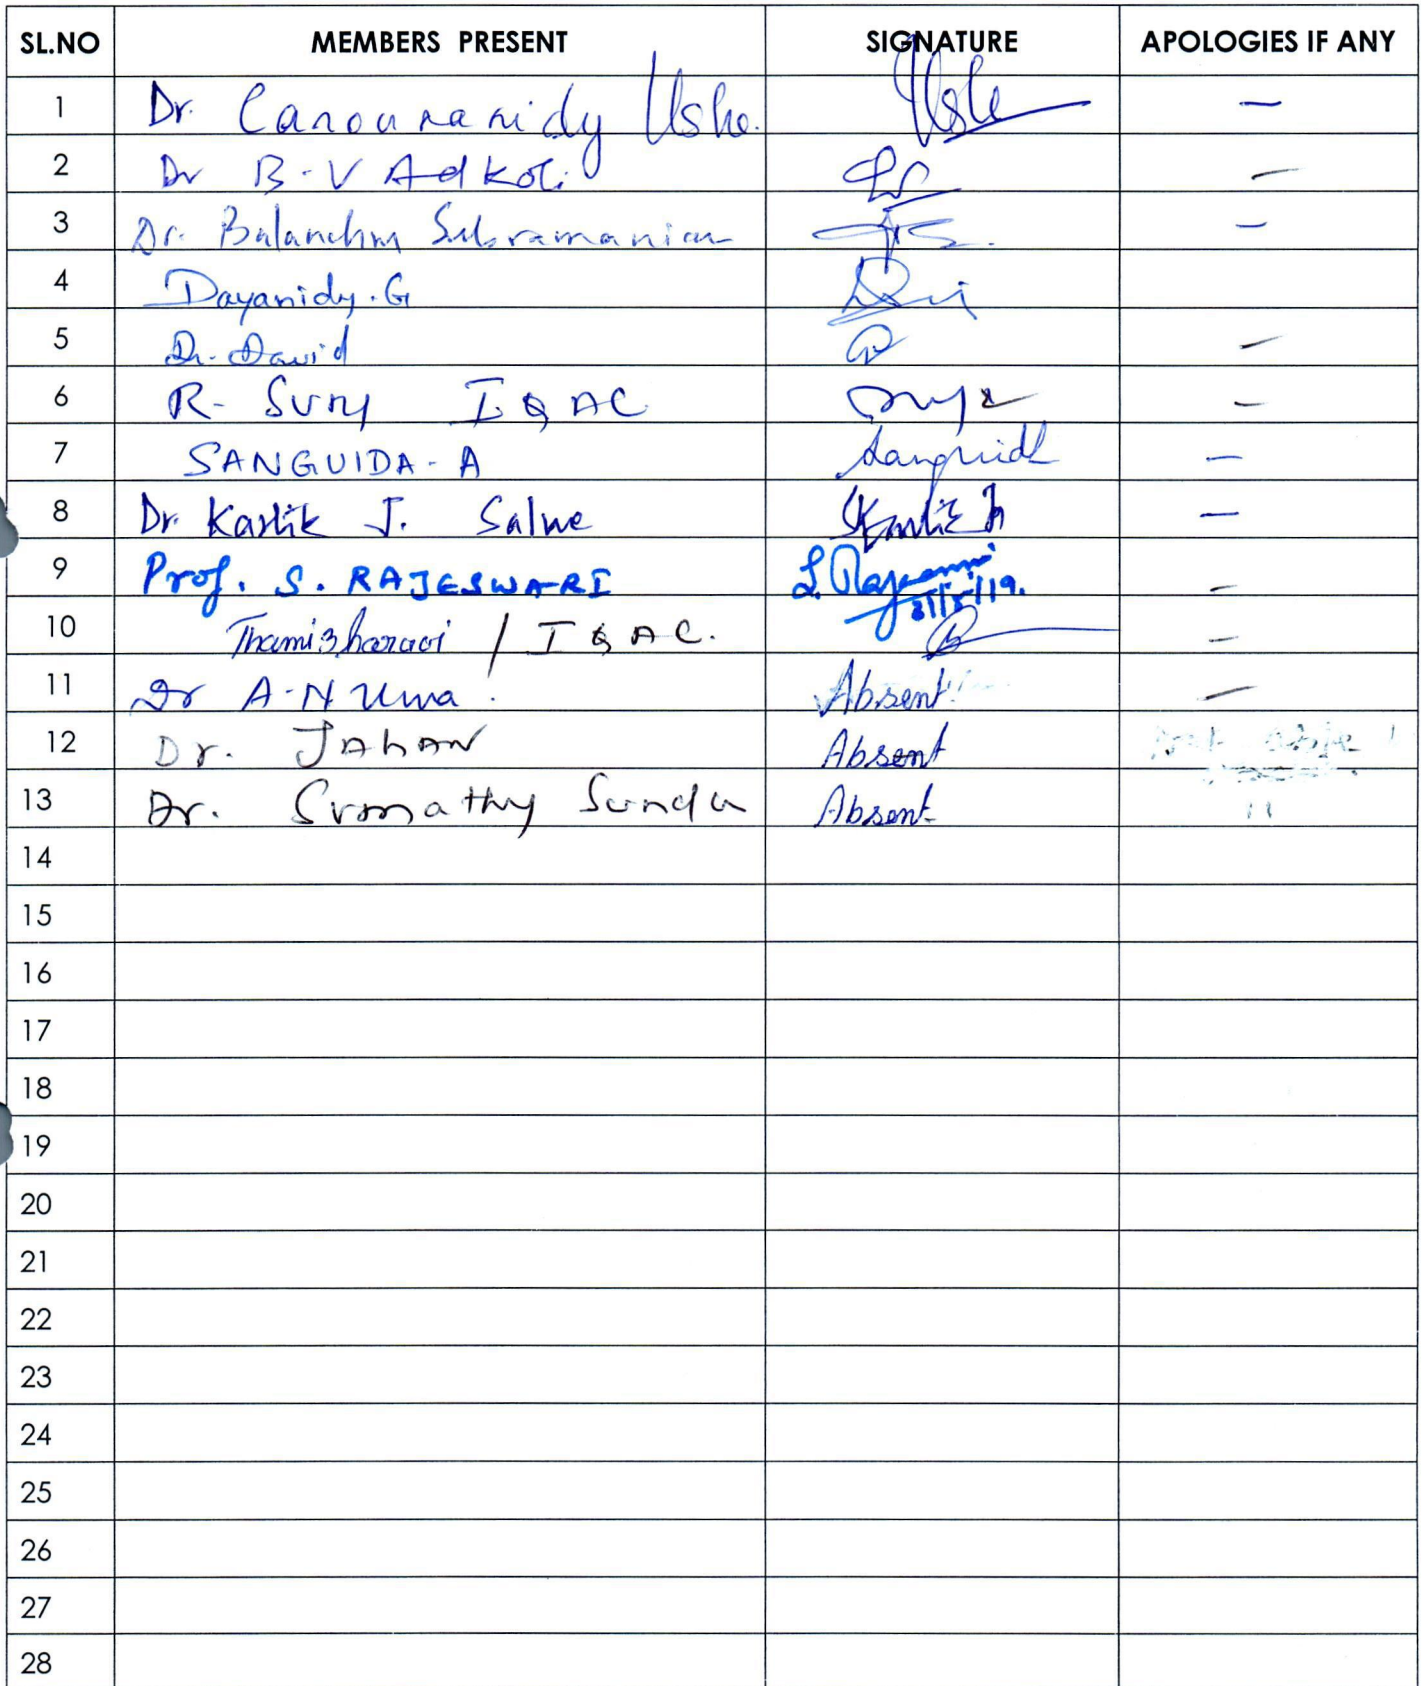 SL.NO MEMBERS PRESENT SIGNATURE APOLOGIES IF ANY
1 Dr. Canounanidy Usha. Usha —
2 Dr B-V Adkoli —
3 Dr. Balanchm Subramanian —
4 Dayanidy.G
5 Dr. David —
6 R- Sury IQAC —
7 SANGUIDA-A Sanguida —
8 Dr. Kartik J. Salwe —
9 Prof. S. RAJESWARI S. 31/5/19. —
10 Thamizharasi / IQAC. —
11 Dr A-N Uma. Absent —
12 Dr. JAHAN Absent
13 Dr. Sumathy Sundar Absent 11
14
15
16
17
18
19
20
21
22
23
24
25
26
27
28